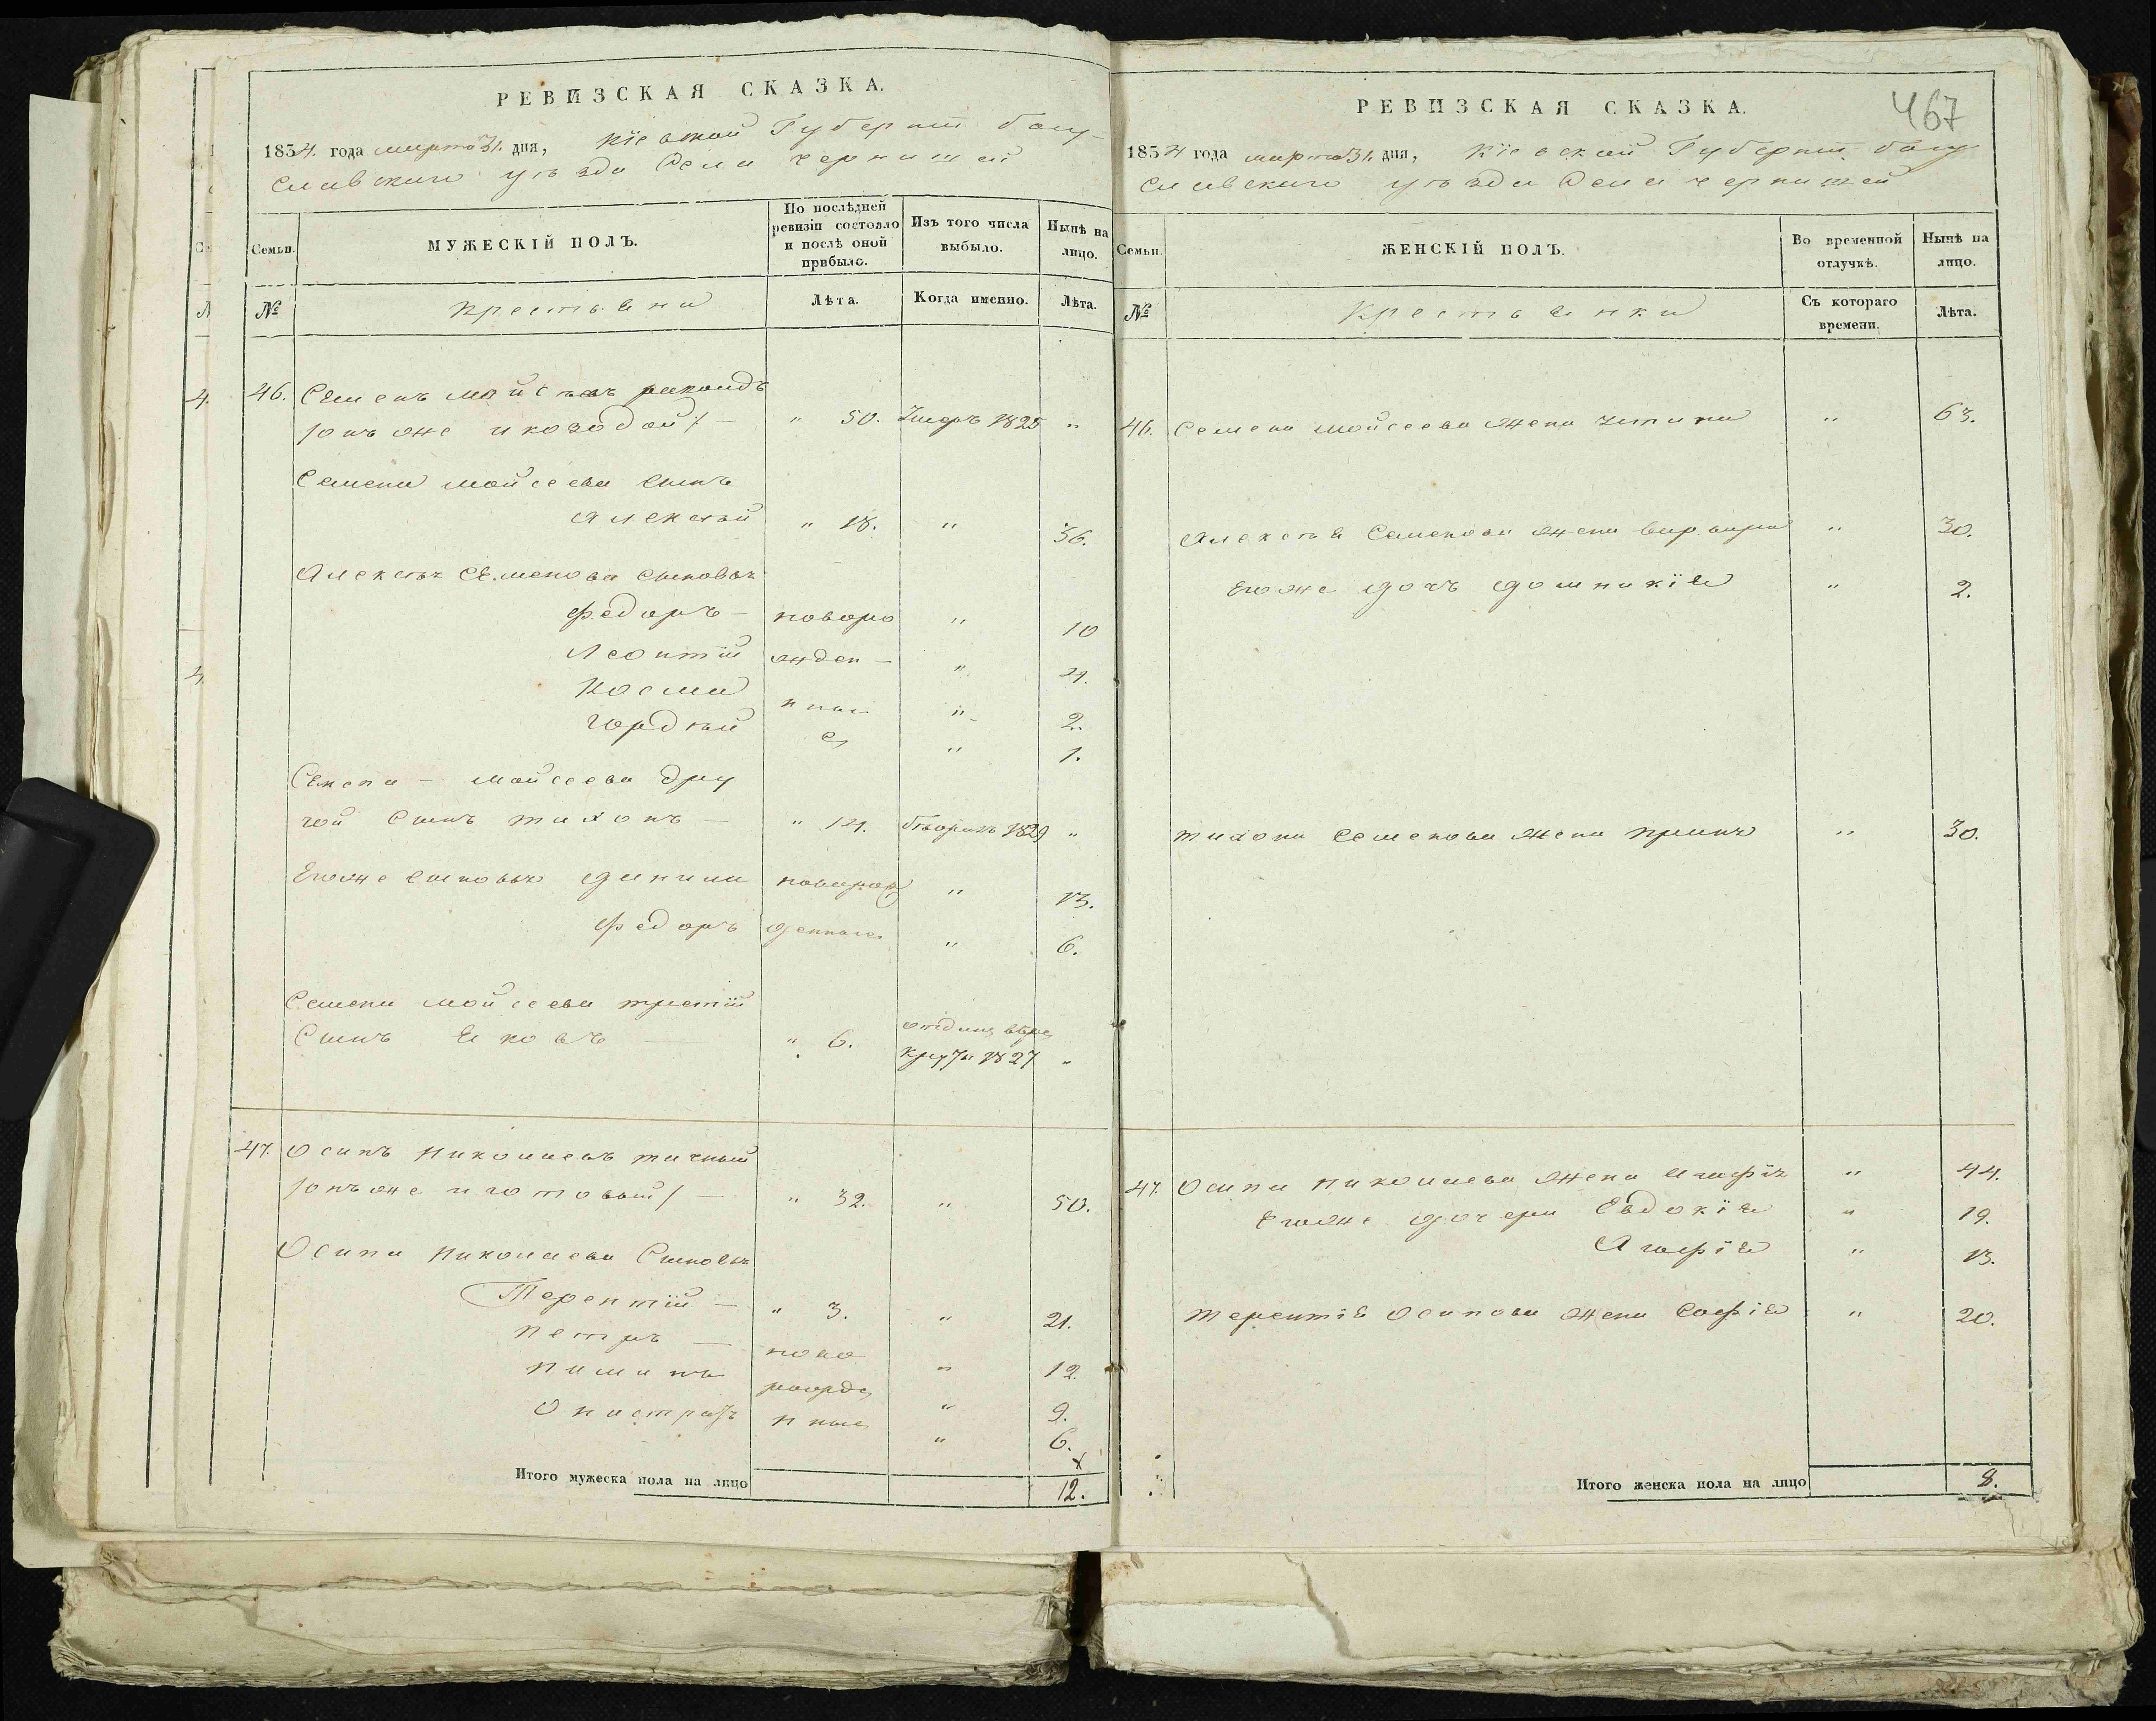 РЕВИЗСКАЯ СКАЗКА.
1834. года марта 31. дня, Кіевской Губерніи Богу-
славскаго уѣзда села Чернишей
Семьи. МУЖЕСКІЙ ПОЛЪ. По послѣдней ревизіи состояло и послѣ оной прибыло. Изъ того числа выбыло. Нынѣ на лицо.
№ Крестьяне Лѣта. Когда именно. Лѣта.
46. Семенъ Мойсѣевъ
/онъ же и козодой/ — " 50. Умеръ 1825 "
Семена Мойсеева сынъ
Алексѣй " 18. " 36.
Алексѣя Семенова сыновья
Федоръ — новоро " 10
Леонтій жден — " 4.
Косма ные " 2.
Гордѣй е " 1.
Семена — Мойсеева дру
гой сынъ Тихонъ — " 14. 1829 "
Егоже сыновья Данила новорож " 13.
Федоръ денные " 6.
Семена Мойсеева третій
сынъ Яковъ — " 6. отданъ въ ре
круты 1827 "
47. Осипъ Николаевъ
/онъ же и готовый/ — " 32. " 50.
Осипа Николаева сыновья
Терентій — " 3. " 21.
Петръ — ново " 12.
Пиминъ рожде " 9.
Онистратъ нные " 6.
Итого мужеска пола на лицо 12.
467
РЕВИЗСКАЯ СКАЗКА.
1834 года марта 31. дня, Кіевской Губерніи Богу
славскаго уѣзда села Чернишей
Семьи. ЖЕНСКІЙ ПОЛЪ. Во временной отлучкѣ. Нынѣ на лицо.
№ Крестьянки Съ котораго времени. Лѣта.
46. Семена Мойсеева жена " 63.
Алексѣя Семенова жена Варвара " 30.
Егоже дочь Домникія " 2.
Тихона Семенова жена " 30.
47. Осипа Николаева жена " 44.
Егоже дочери Евдокія " 19.
Агафія " 13.
Терентія Осипова жена Софія " 20.
Итого женска пола на лицо 8.